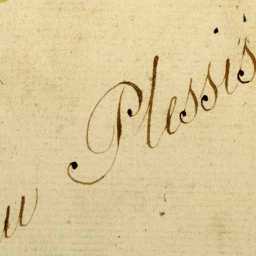 u Plessis